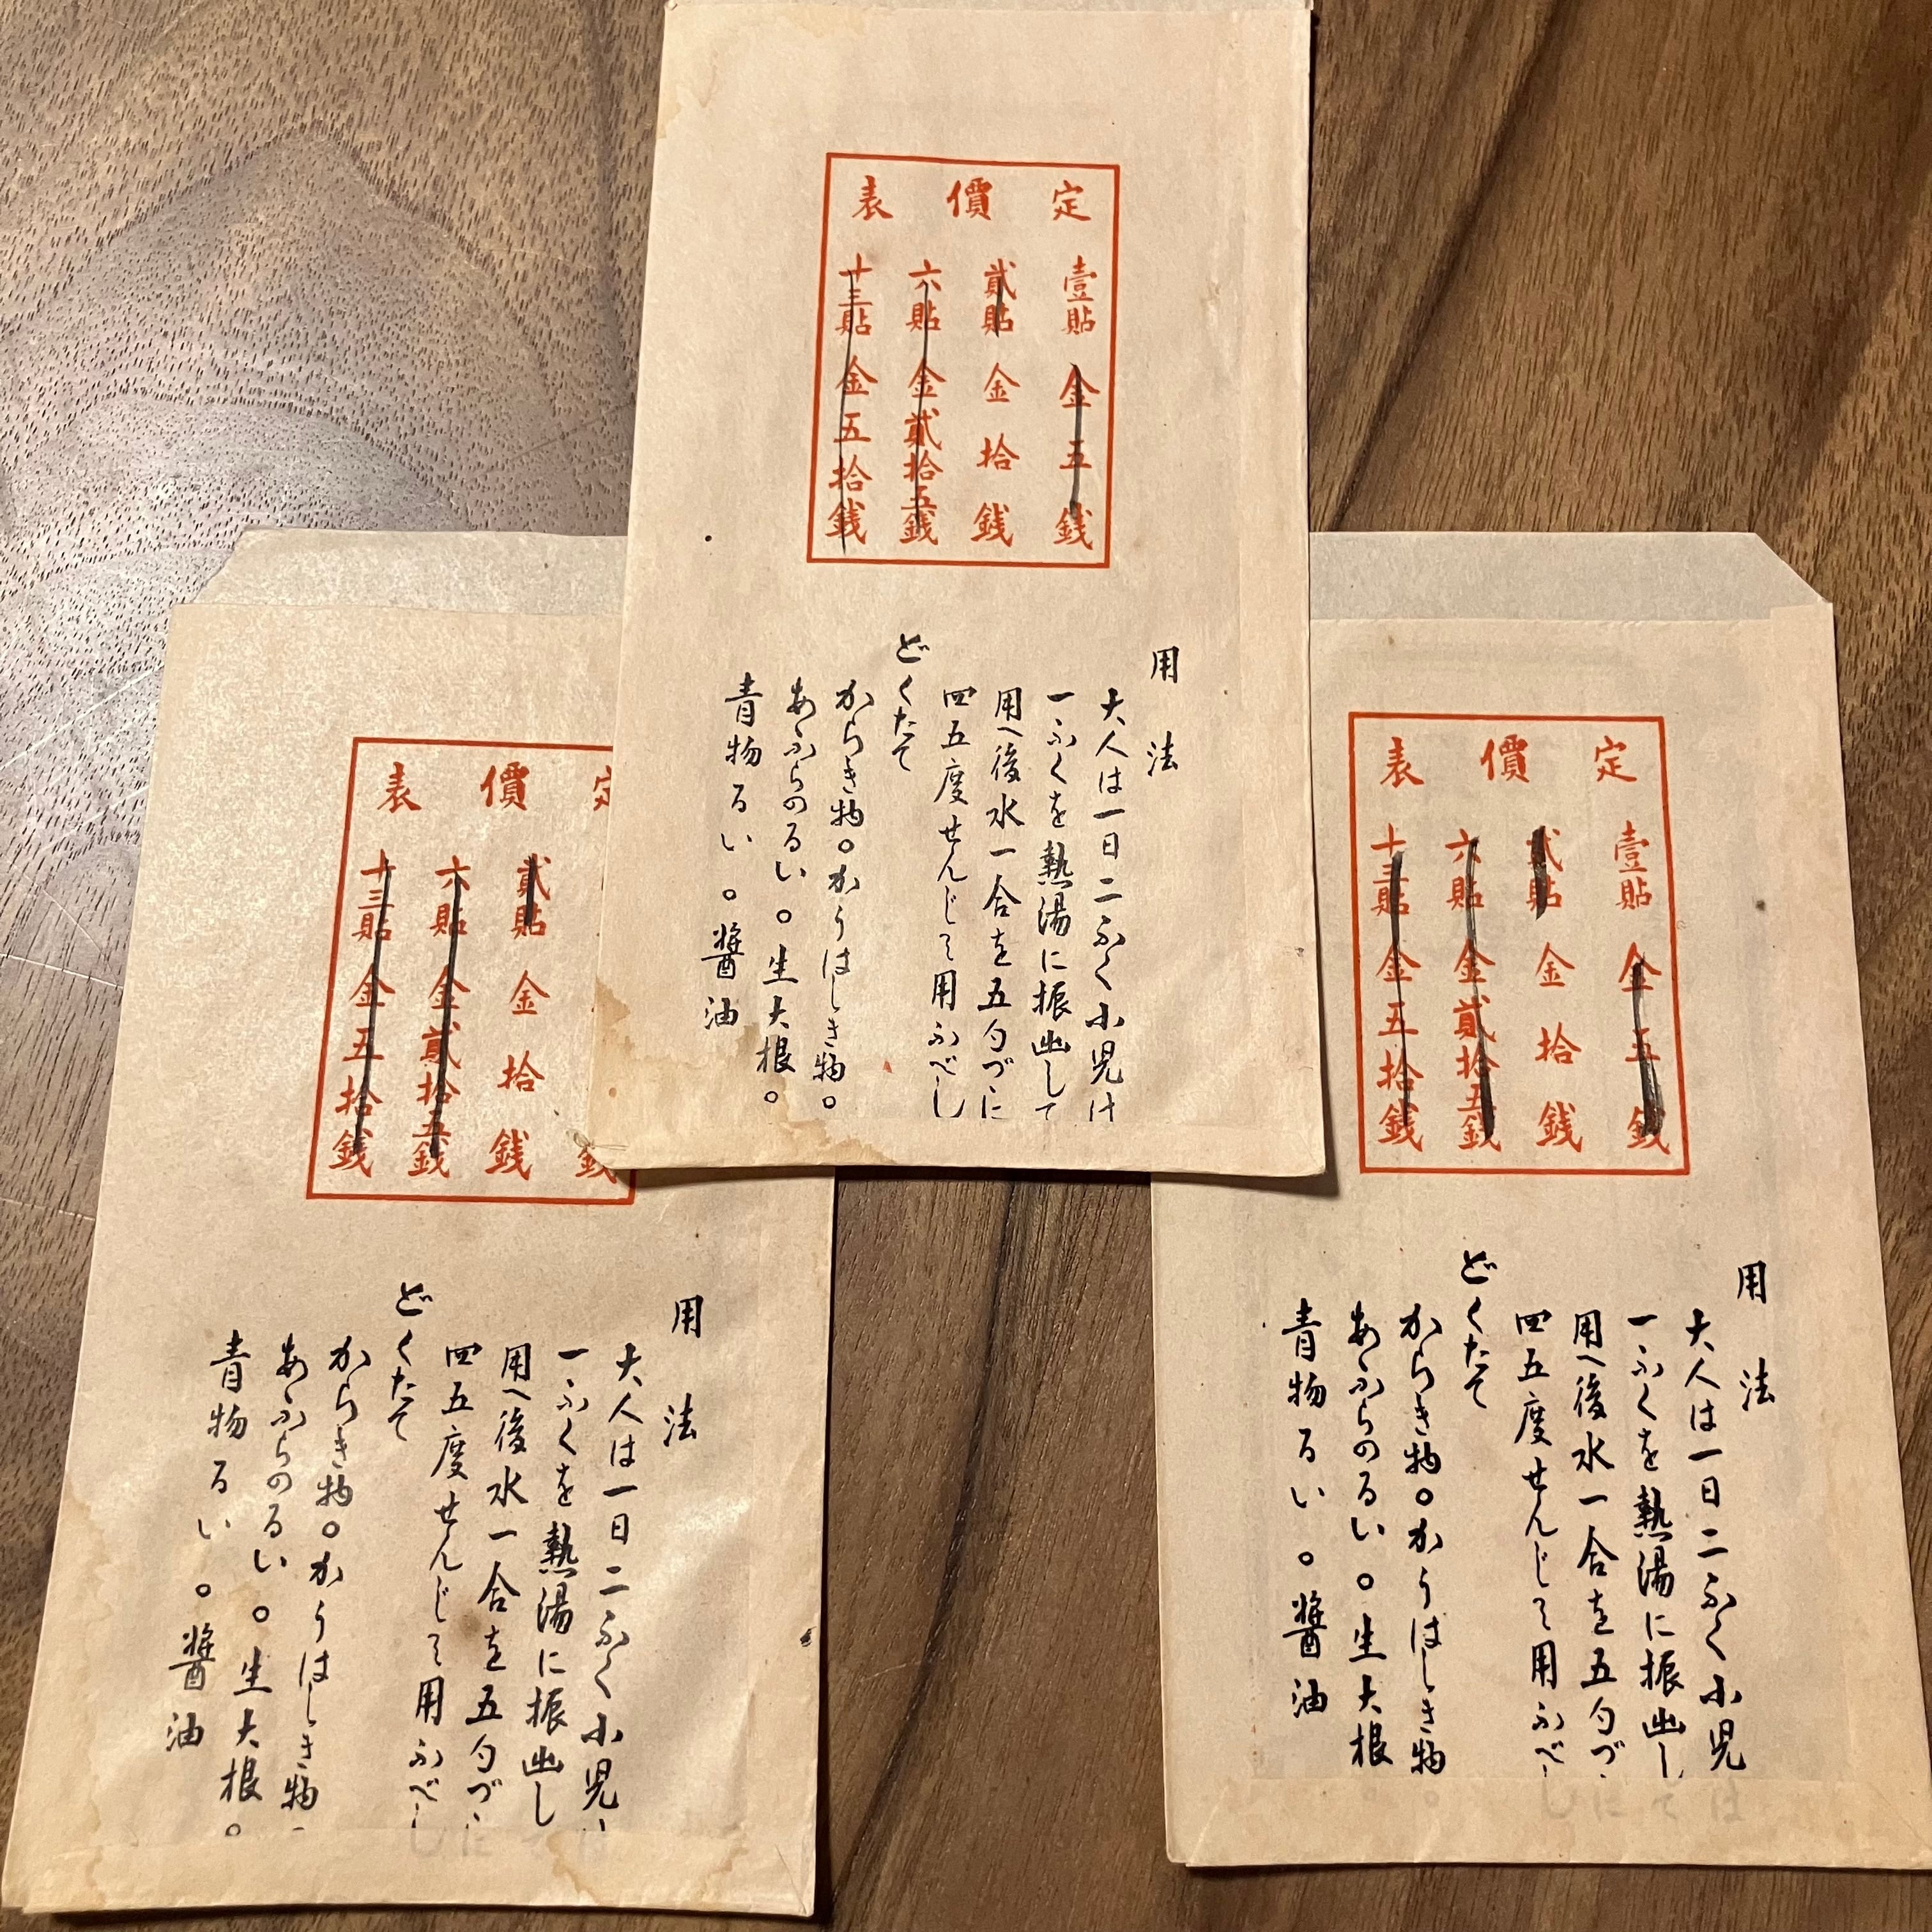 定價表
壹貼金五銭
貳貼金拾銭
六貼金貳拾五銭
十三貼金五拾銭
用法
大人は一日二ふく小児は
一ふくを熱湯に振出して
用へ後水一合を五勺づに
四五度せんじて用ふべし
どくたて
からき物。かうはしき物。
あふらのるい。生大根。
青物るい。醬油
定價表
壹貼金五銭
貳貼金拾銭
六貼金貳拾五銭
十三貼金五拾銭
用法
大人は一日二ふく小児は
一ふくを熱湯に振出して
用へ後水一合を五勺づに
四五度せんじて用ふべし
どくたて
からき物。かうはしき物。
あふらのるい。生大根。
青物るい。醬油
價表
銭
貳貼金拾銭
六貼金貳拾五銭
十三貼金五拾銭
用法
大人は一日二ふく小児は
一ふくを熱湯に振出して
用へ後水一合を五勺づに
四五度せんじて用ふべし
どくたて
からき物。かうはしき物。
あふらのるい。生大根。
青物るい。醬油